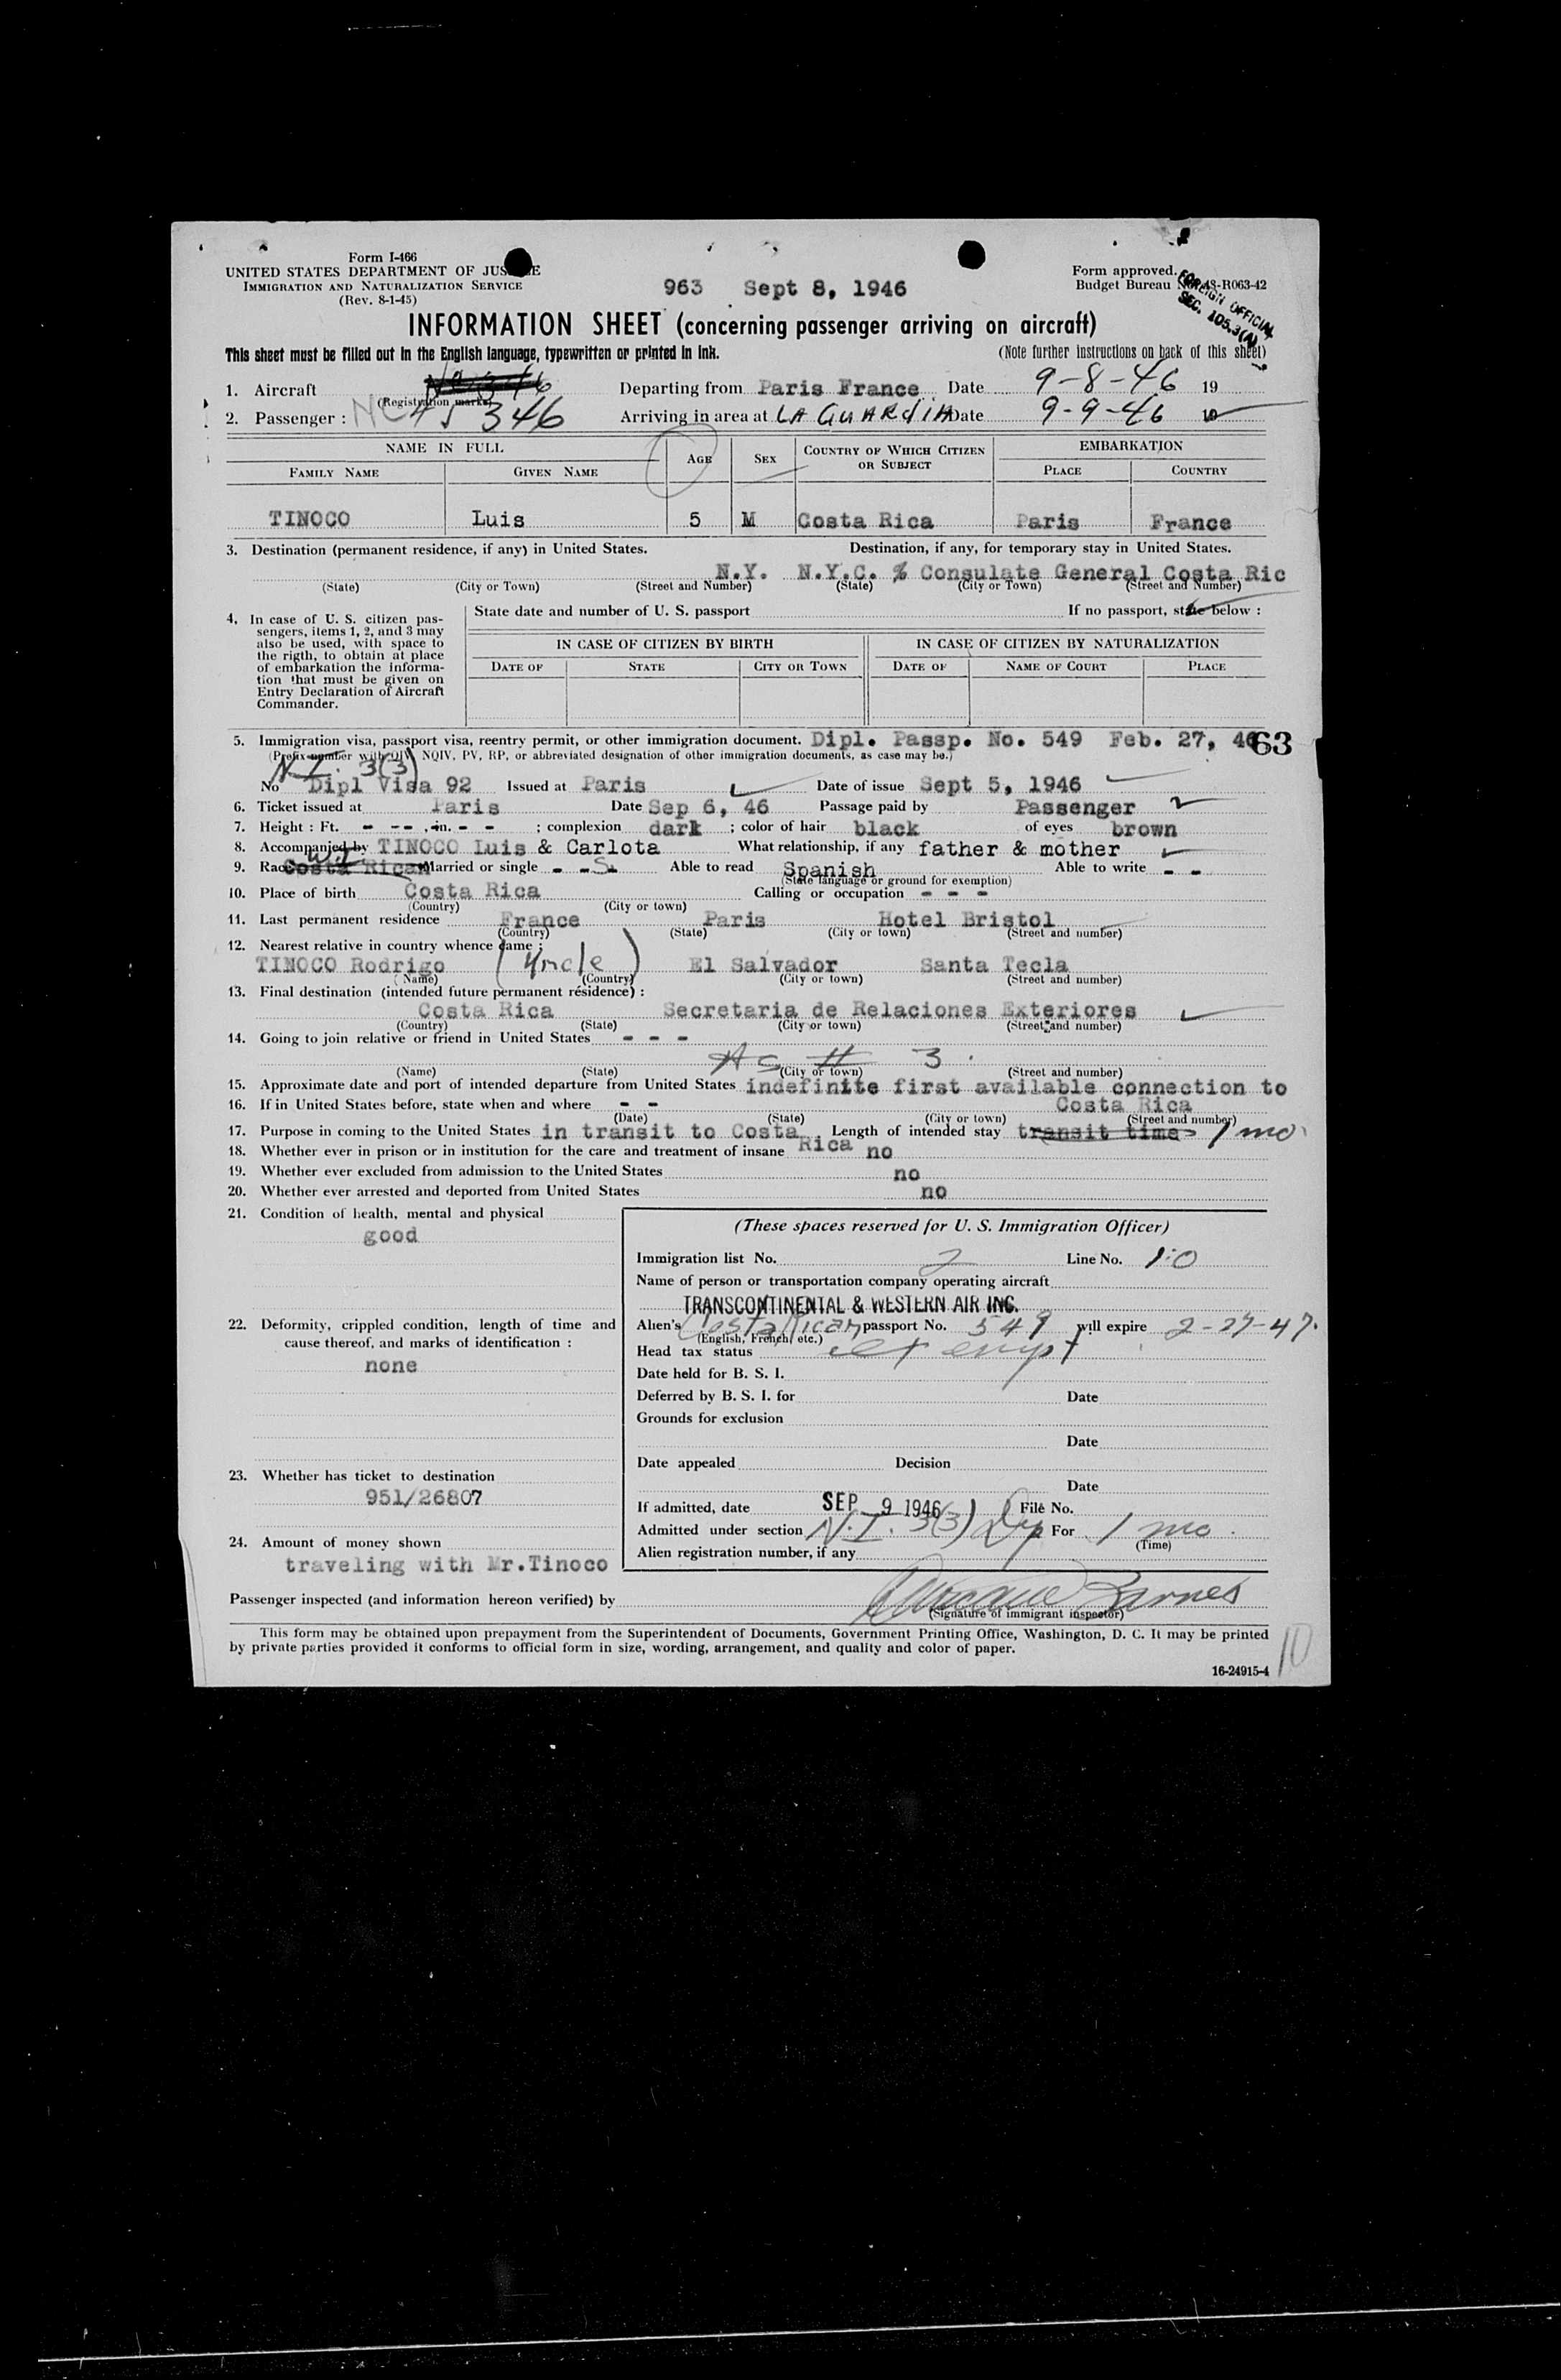 Form I-466
UNITED STATES DEPARTMENT OF JUSTICE
IMMIGRATION AND NATURALIZATION SERVICE
(Rev. 8-1-45)
963 Sept 8, 1946
Form approved.
Budget Bureau No. 43-R063-42
FOREIGN OFFICIAL
SEC. 105.3(A)
INFORMATION SHEET (concerning passenger arriving on aircraft)
This sheet must be filled out in the English language, typewritten or printed in ink.
(Note further instructions on back of this sheet)
1. Aircraft Departing from Paris France Date 9-8-46 19
(Registration marks)
2. Passenger : NC 45 346 Arriving in area at LA GUARdIA Date 9-9-46
NAME IN FULL AGE SEX COUNTRY OF WHICH CITIZEN OR SUBJECT EMBARKATION
FAMILY NAME GIVEN NAME PLACE COUNTRY
TINOCO Luis 5 M Costa Rica Paris France
3. Destination (permanent residence, if any) in United States. Destination, if any, for temporary stay in United States.
N.Y. N.Y.C. % Consulate General Costa Ric
(State) (City or Town) (Street and Number) (State) (City or Town) (Street and Number)
4. In case of U. S. citizen pas-
sengers, items 1, 2, and 3 may
also be used, with space to
the rigth, to obtain at place
of embarkation the informa-
tion that must be given on
Entry Declaration of Aircraft
Commander.
State date and number of U. S. passport If no passport, state below :
IN CASE OF CITIZEN BY BIRTH IN CASE OF CITIZEN BY NATURALIZATION
DATE OF STATE CITY OR TOWN DATE OF NAME OF COURT PLACE
5. Immigration visa, passport visa, reentry permit, or other immigration document. Dipl. Passp. No. 549 Feb. 27, 46
63
(Prefix number with QIV, NQIV, PV, RP, or abbreviated designation of other immigration documents, as case may be.)
N.I. 3(3)
No Dipl Visa 92 Issued at Paris Date of issue Sept 5, 1946
6. Ticket issued at Paris Date Sep 6, 46 Passage paid by Passenger
7. Height : Ft. - -- , in. - - ; complexion dark ; color of hair black of eyes brown
8. Accompanied by TINOCO Luis & Carlota What relationship, if any father & mother
9. Race Costa Rican Married or single - -S- Able to read Spanish Able to write - -
(State language or ground for exemption)
10. Place of birth Costa Rica Calling or occupation - - -
(Country) (City or town)
11. Last permanent residence France Paris Hotel Bristol
(Country) (State) (City or town) (Street and number)
12. Nearest relative in country whence came :
TINOCO Rodrigo (Uncle) El Salvador Santa Tecla
(Name) (Country) (City or town) (Street and number)
13. Final destination (intended future permanent résidence) :
Costa Rica Secretaria de Relaciones Exteriores
(Country) (State) (City or town) (Street and number)
14. Going to join relative or friend in United States - - -
As # 3
(Name) (State) (City or town) (Street and number)
15. Approximate date and port of intended departure from United States indefinite first available connection to
16. If in United States before, state when and where - - Costa Rica
(Date) (State) (City or town) (Street and number)
17. Purpose in coming to the United States in transit to Costa Rica Length of intended stay transit time 1 mo
18. Whether ever in prison or in institution for the care and treatment of insane no
19. Whether ever excluded from admission to the United States no
20. Whether ever arrested and deported from United States no
21. Condition of health, mental and physical
good
22. Deformity, crippled condition, length of time and
cause thereof, and marks of identification :
none
23. Whether has ticket to destination
951/26807
24. Amount of money shown
traveling with Mr.Tinoco
(These spaces reserved for U. S. Immigration Officer)
Immigration list No. 2 Line No. 10
Name of person or transportation company operating aircraft
TRANSCONTINENTAL & WESTERN AIR INC.
Alien's Costa Rican passport No. 549 will expire 2-27-47
(English, French, etc.)
Head tax status exempt
Date held for B. S. I.
Deferred by B. S. I. for Date
Grounds for exclusion
Date
Date appealed Decision
Date
If admitted, date SEP 9 1946 File No.
Admitted under section N.I. 3(3) Dip For 1 mo.
(Time)
Alien registration number, if any
Passenger inspected (and information hereon verified) by Barnes
(Signature of immigrant inspector)
This form may be obtained upon prepayment from the Superintendent of Documents, Government Printing Office, Washington, D. C. It may be printed
by private parties provided it conforms to official form in size, wording, arrangement, and quality and color of paper.
16-24915-4
10